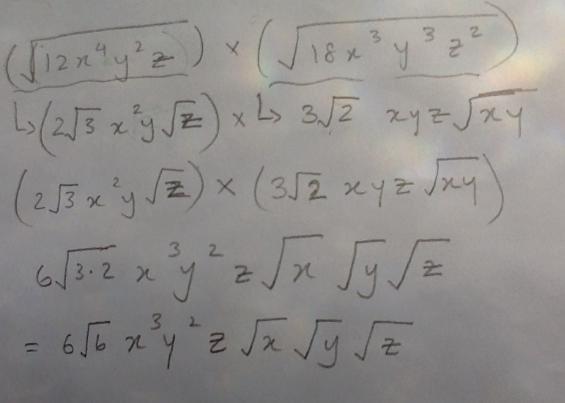 (√(12x⁴y²z)) × (√(18x³y³z²))
↳(2√3 x²y√z) × ↳ 3√2 xyz√(xy)
(2√3 x²y√z) × (3√2 xyz√(xy))
6√(3·2) x³y²z√x √y√z
= 6√6 x³y²z√x√y√z